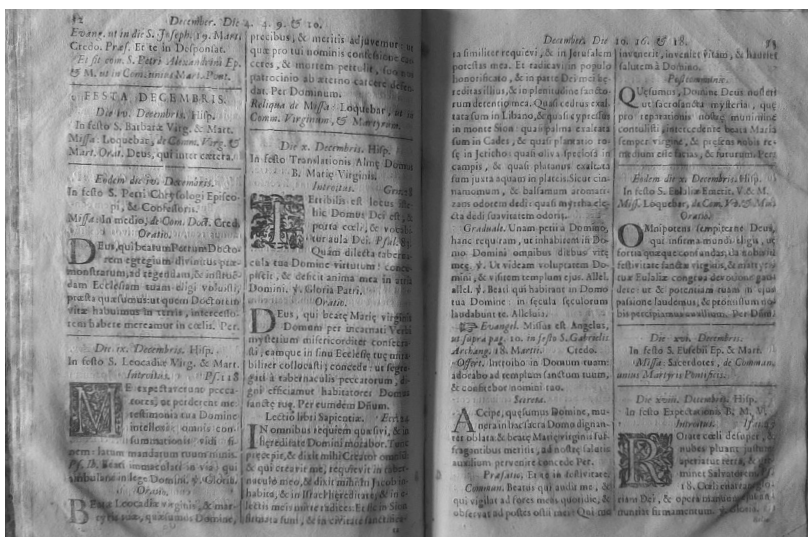 12 December. Die 4. 4. 9. & 10.
Evang. ut in die S. Joseph. 19. Mart.
Credo. Præf. Et te in Desponsat.
Et fit com. S. Petri Alexandrini Ep.
& M. ut in Com. unius Mart. Pont.
FESTA DECEMBRIS.
Die iv. Decembris. Hisp.
In festo S. Barbaræ Virg. & Mart.
Missa: Loquebar, de Comm. Virg. &
Mart. Orat. Deus, qui inter cætera.
Eodem die iv. Decembris.
In festo S. Petri Chrysologi Episco-
pi, & Confessoris.
Missa: In medio, de Com. Doct. Cred.
Oratio.
Deus, qui beatum Petrum Docto-
rem egregium divinitus præ-
monstratum, ad regendam, & instruē-
dam Ecclesiam tuam eligi voluisti,
præsta quæsumus: ut quem Doctorem
vitæ habuimus in terris, intercesso-
rem habere mereamur in cœlis. Per.
Die ix. Decembris. Hisp.
In festo S. Leocadiæ Virg. & Mart.
Introitus. Ps. 118
ME expectaverunt pecca-
tores, ut perderent me:
testimonia tua Domine
intellexi: omnis con-
summationis vidi fi-
nem: latum mandatum tuum nimis.
Ps. Ib. Beati immaculati in via: qui
ambulant in lege Domini. ℣. Gloria.
Oratio.
Beatæ Leocadiæ virginis, & mar-
tyris tuæ, quæsumus Domine,
precibus, & meritis adjuvemur: ut
quæ pro tui nominis confessione car-
ceres, & mortem pertulit, suo nos
patrocinio ab æterno carcere defen-
dat. Per Dominum.
Reliqua de Missa: Loquebar, ut in
Comm. Virginum, & Martyrum.
Die x. Decembris. Hisp.
In festo Translationis Almę Domus
B. Marię Virginis.
Introitus.
TErribilis est locus iste:
hic Domus Dei est, &
porta cœli, & vocabi-
tur aula Dei. Psal.
Quàm dilecta taberna-
cula tua Domine virtutum: concu-
piscit, & deficit anima mea in atria
Domini. ℣. Gloria Patri.
Oratio.
Deus, qui beatę Marię virginis
Domum per incarnati Verbi
mysterium misericorditer consecra-
sti; eamque in sinu Ecclesię tuę mira-
biliter collocasti; concede: ut segre-
gati à tabernaculis peccatorum, di-
gni efficiamur habitatores Domus
sanctę tuę. Per eumdem Dñum.
Lectio libri Sapientiæ.
IN omnibus requiem quæsivi, & in
hęreditate Domini morabor. Tunc
pręcepit, & dixit mihi Creator omniū:
& qui creavit me, requievit in taber-
naculo meo, & dixit mihi: In Jacob in-
habita, & in Israel hęreditare, & in e-
lectis meis mitte radices. Et sic in Sion
firmata sum, & in civitate sanctifica-
December. Die 10. 16. & 18.
ta similiter requievi, & in Jerusalem
potestas mea. Et radicavi in populo
honorificato, & in parte Dei mei hę-
reditas illius, & in plenitudine sancto-
rum detentio mea. Quasi cedrus exal-
tata sum in Libano, & quasi cypressus
in monte Sion: quasi palma exaltata
sum in Cades, & quasi plantatio ro-
sę in Jericho: quasi oliva speciosa in
campis, & quasi platanus exaltata
sum juxta aquam in plateis. Sicut cin-
namomum, & balsamum aromati-
zans odorem dedi: quasi myrrha ele-
cta dedi suavitatem odoris.
Graduale. Unam petii à Domino,
hanc requiram, ut inhabitem in Do-
mo Domini omnibus diebus vitę
meę. ℣. Ut videam voluptatem Do-
mini, & visitem templum ejus. Allel.
allel. ℣. Beati qui habitant in Domo
tua Domine: in sęcula sęculorum
laudabunt te. Alleluia.
Evangel. Missus est Angelus,
ut supra pag. 10. in festo S. Gabrielis
Archang. 18. Martii. Credo.
Offert. Introibo in Domum tuam:
adorabo ad templum sanctum tuum,
& confitebor nomini tuo.
Secreta.
Accipe, quęsumus Domine, mu-
nera in hac sacra Domo dignan-
ter oblata: & beatę Marię virginis suf-
fragantibus meritis, ad nostrę salutis
auxilium pervenire concede. Per.
Præfatio, Et te in festivitate.
Commun. Beatus qui audit me, &
qui vigilat ad fores meas quotidie, &
observat ad postes ostii mei: Qui me
invenerit, inveniet vitam, & hauriet
salutem à Domino.
Postcommunio.
Quęsumus, Domine Deus noster:
ut sacrosancta mysteria, quę
pro reparationis nostrę munimine
contulisti, intercedente beata Maria
semper virgine, & pręsens nobis re-
medium esse facias, & futurum. Per.
Eodem die x. Decembris. Hisp.
In festo S. Eulaliæ Emerit. V. & M.
Miss. Loquebar, de Com. Vir. & Mar.
Oratio.
Omnipotens sempiterne Deus,
qui infirma mundi eligis, ut
fortia quæque confundas, da nobis in
festivitate sanctæ virginis, & martyris
tuæ Eulaliæ congrua devotione gau-
dere: ut & potentiam tuam in ejus
passione laudemus, & promissum no-
bis percipiamus auxilium. Per Dñm.
Die xvi. Decembris.
In festo S. Eusebii Ep. & Mart.
Missa: Sacerdotes, de Comman.
unius Martyris Pontificis.
Die xviii. Decembris. Hisp.
In festo Expectationis B. M. V.
Introitus.
ROrate cœli desuper, &
nubes pluant justum:
aperiatur terra, & ger-
minet Salvatorem.
18. Cœli enarrant glo-
riam Dei, & opera manuum ejus an-
nuntiat firmamentum. ℣. Gloria.